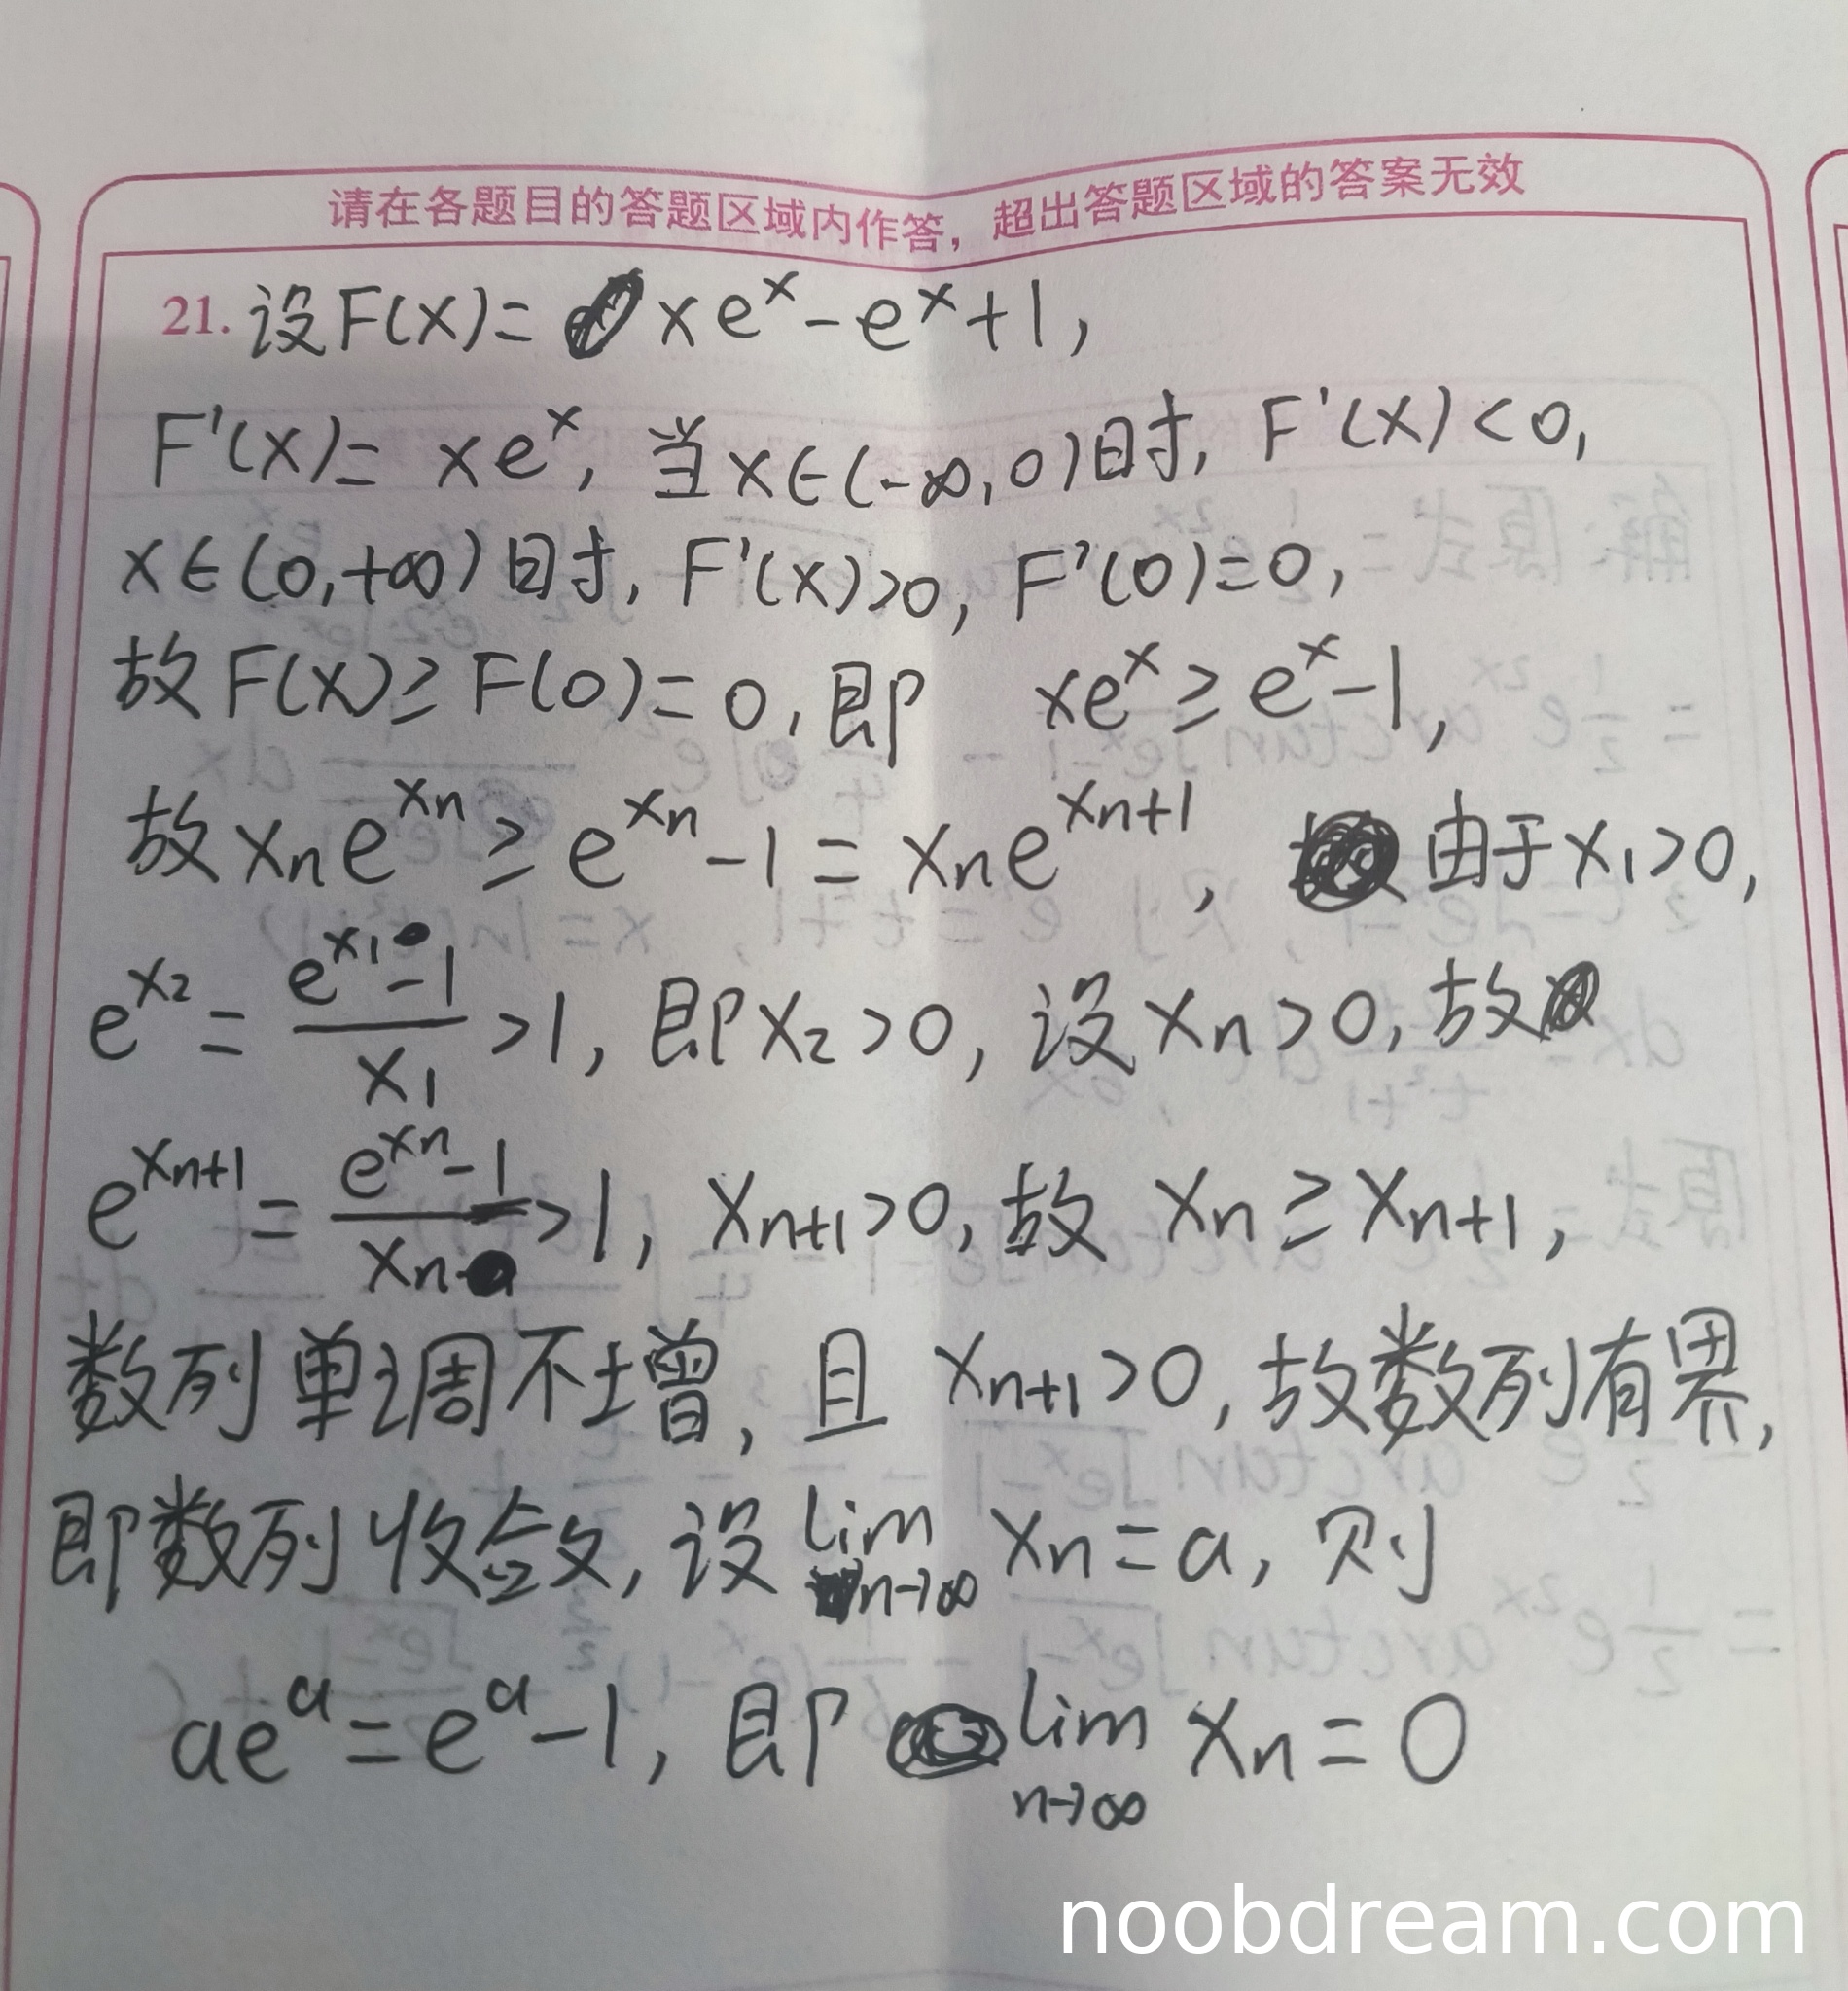 请在各题目的答题区域内作答，超出答题区域的答案无效
21. 设F(x)= xe^x-e^x+1,
F'(x)= xe^x, 当x∈(-∞,0)时, F'(x)<0,
x∈(0,+∞)时, F'(x)>0, F'(0)=0,
故F(x)≥F(0)=0, 即 xe^x≥e^x-1,
故x_n e^{x_n}≥e^{x_n}-1=x_n e^{x_{n+1}}, 由于x_1>0,
e^{x_2}=\frac{e^{x_1}-1}{x_1}>1, 即x_2>0, 设x_n>0, 故
e^{x_{n+1}}=\frac{e^{x_n}-1}{x_n}>1, x_{n+1}>0, 故 x_n≥x_{n+1},
数列单调不增, 且 x_{n+1}>0, 故数列有界,
即数列收敛, 设 \lim_{n→∞} x_n=a, 则
ae^a=e^a-1, 即 \lim_{n→∞} x_n=0
noobdream.com